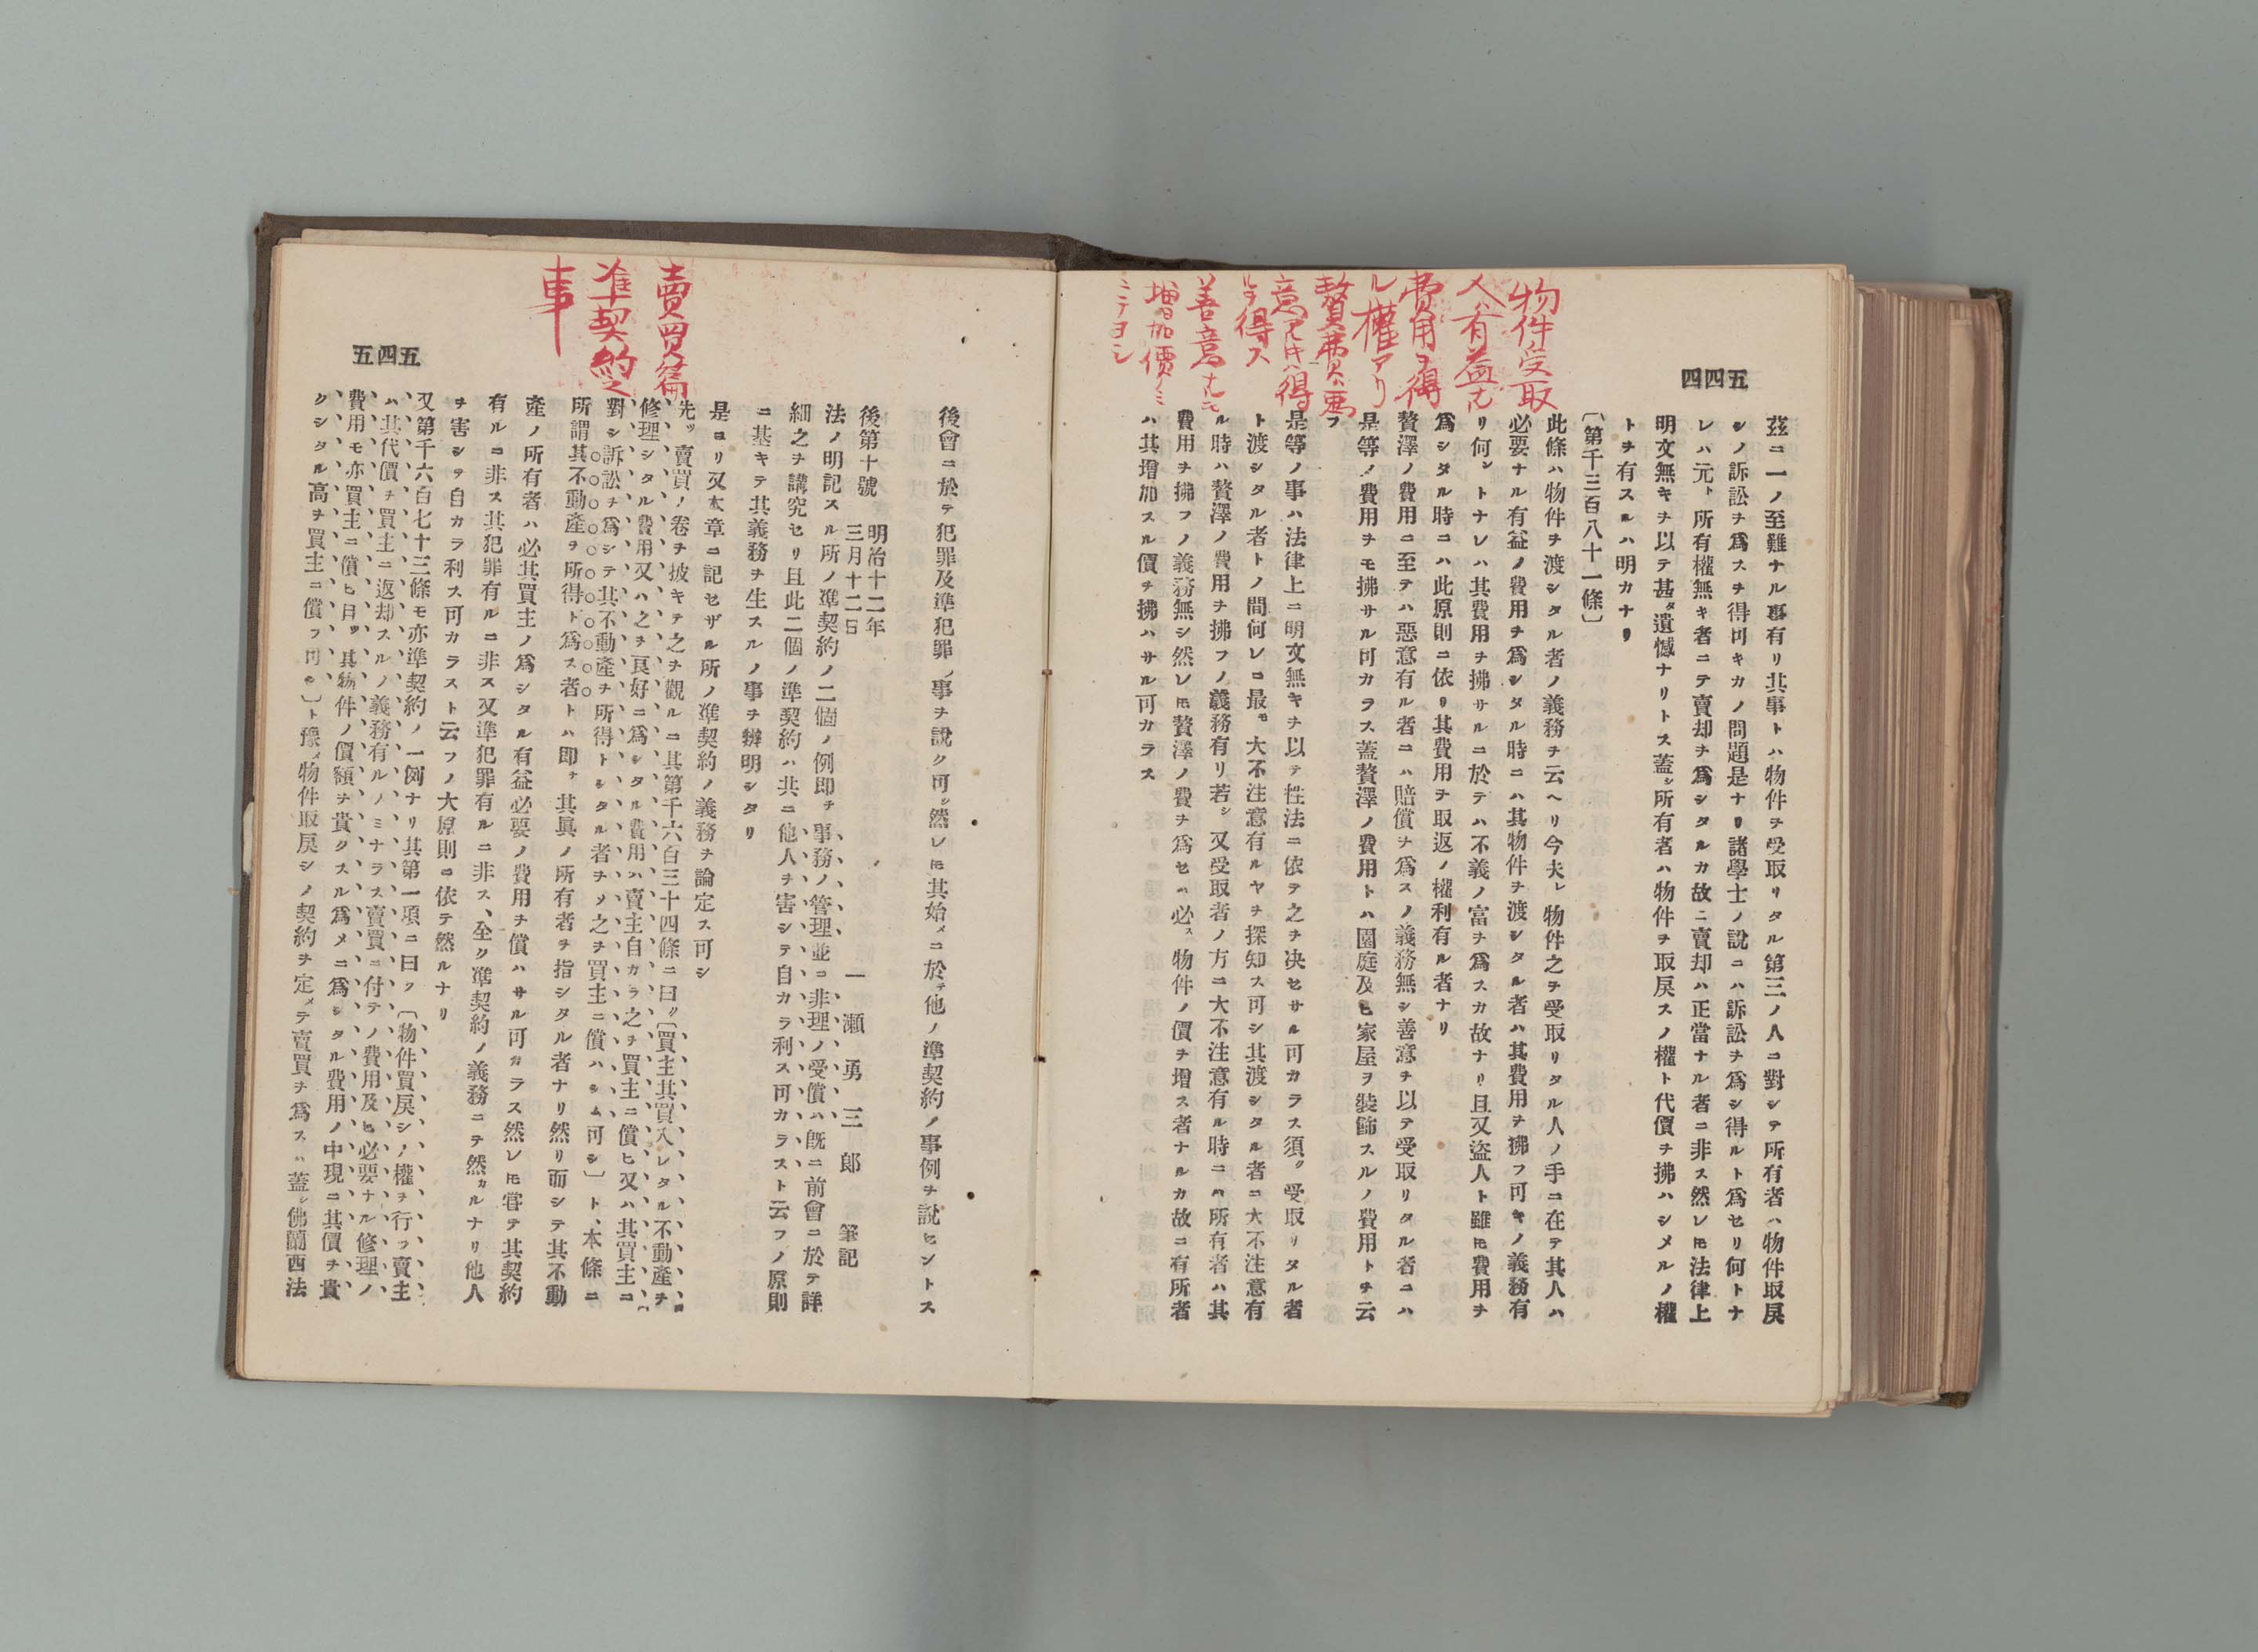 物件受取
人ハ有益ナ
費用ヲ得
ル權アリ
贅費ハ悪
意ナレハ得
ルヲ得ス
善意ナレハ
増加價ノミ
ニテヨシ
四四五
茲ニ一ノ至難ナル事有リ其事トハ物件ヲ受取リタル第三ノ人ニ對シテ所有者ハ物件取戻
シノ訴訟ヲ爲スヲ得可キカノ問題是ナリ諸學士ノ說ニハ訴訟ヲ爲シ得ルト爲セリ何トナ
レハ元ト所有權無キ者ニテ賣却ヲ爲シタルカ故ニ賣却ハ正當ナル者ニ非ス然レ𪜈法律上
明文無キヲ以テ甚タ遺憾ナリトス蓋シ所有者ハ物件ヲ取戻スノ權ト代價ヲ拂ハシメルノ權
トヲ有スルハ明カナリ
〔第千三百八十一條〕
此條ハ物件ヲ渡シタル者ノ義務ヲ云ヘリ今夫レ物件之ヲ受取リタル人ノ手ニ在テ其人ハ
必要ナル有益ノ費用ヲ爲シタル時ニハ其物件ヲ渡シタル者ハ其費用ヲ拂フ可キノ義務有
リ何ントナレハ其費用ヲ拂サルニ於テハ不義ノ富ヲ爲スカ故ナリ且又盗人ト雖𪜈費用ヲ
爲シタル時ニハ此原則ニ依リ其費用ヲ取返ノ權利有ル者ナリ
贅澤ノ費用ニ至テハ惡意有ル者ニハ賠償ヲ爲スノ義務無シ善意ヲ以テ受取リタル者ニハ
是等ノ費用ヲモ拂サル可カラス蓋贅澤ノ費用トハ園庭及ヒ家屋ヲ裝飾スルノ費用トヲ云
フ
是等ノ事ハ法律上ニ明文無キヲ以テ性法ニ依テ之ヲ决セサル可カラス須ク受取リタル者
ト渡シタル者トノ間何レコ最モ大不注意有ルヤヲ探知ス可シ其渡シタル者ニ大不注意有
ル時ハ贅澤ノ費用ヲ拂フノ義務有リ若シ又受取者ノ方ニ大不注意有ル時ニハ所有者ハ其
費用ヲ拂フノ義務無シ然レ𪜈贅澤ノ費ヲ爲セハ必ス物件ノ價ヲ增ス者ナルカ故ニ有所者
ハ其增加スル價ヲ拂ハサル可カラス
後會ニ於テ犯罪及準犯罪ノ事ヲ說ク可シ然レ𪜈其始メニ於テ他ノ準契約ノ事例ヲ說セントス
後第十號 明治十二年
三月十二日
一瀬勇三郎 筆記
法ノ明記スル所ノ準契約ノ二個ノ例即チ事務ノ管理並ニ非理ノ受償ハ既ニ前會ニ於テ詳
細之ヲ講究セリ且此二個ノ準契約ハ共ニ他人ヲ害シテ自カラ利ス可カラスト云フノ原則
ニ基キテ其義務ヲ生スルノ事ヲ辨明シタリ
是ヨリ又本章ニ記セザル所ノ準契約ノ義務ヲ論定ス可シ
賣買篇
準契約
事
先ッ賣買ノ卷ヲ披キテ之ヲ觀ルニ其第千六百三十四條ニ曰ク〔買主其買入レタル不動產ヲ
修理シタル費用又ハ之ヲ良好ニ爲シタル費用ハ賣主自カラ之ヲ買主ニ償ヒ又ハ其買主ニ
對シ訴訟ヲ爲シテ其不動產ヲ所得トシタル者ヲメ之ヲ買主ニ償ハシム可シ〕ト、本條ニ
所謂其不動產ヲ所得ト爲ス者トハ即チ其眞ノ所有者ヲ指シタル者ナリ然リ而シテ其不動
產ノ所有者ハ必其買主ノ爲シタル有益必要ノ費用ヲ償ハサル可カラス然レ𪜈甞テ其契約
有ルニ非ス其犯罪有ルニ非ス又準犯罪有ルニ非ス、全ク準契約ノ義務ニテ然カルナリ他人
ヲ害シテ自カラ利ス可カラスト云フノ大原則ニ依テ然ルナリ
五四五
又第千六百七十三條モ亦準契約ノ一例ナリ其第一項ニ曰ク〔物件買戻シノ權ヲ行フ賣主
ハ其代價ヲ買主ニ返却スルノ義務有ルノミナラス賣買ニ付テノ費用及ヒ必要ナル修理ノ
費用モ亦買主ニ償ヒ且ツ其物件ノ價額ヲ貴クスル爲メニ爲シタル費用ノ中現ニ其價ヲ貴
クシタル高ヲ買主ニ償フ可シ〕ト豫メ物件取戻シノ契約ヲ定メテ賣買ヲ爲スハ蓋シ佛蘭西法